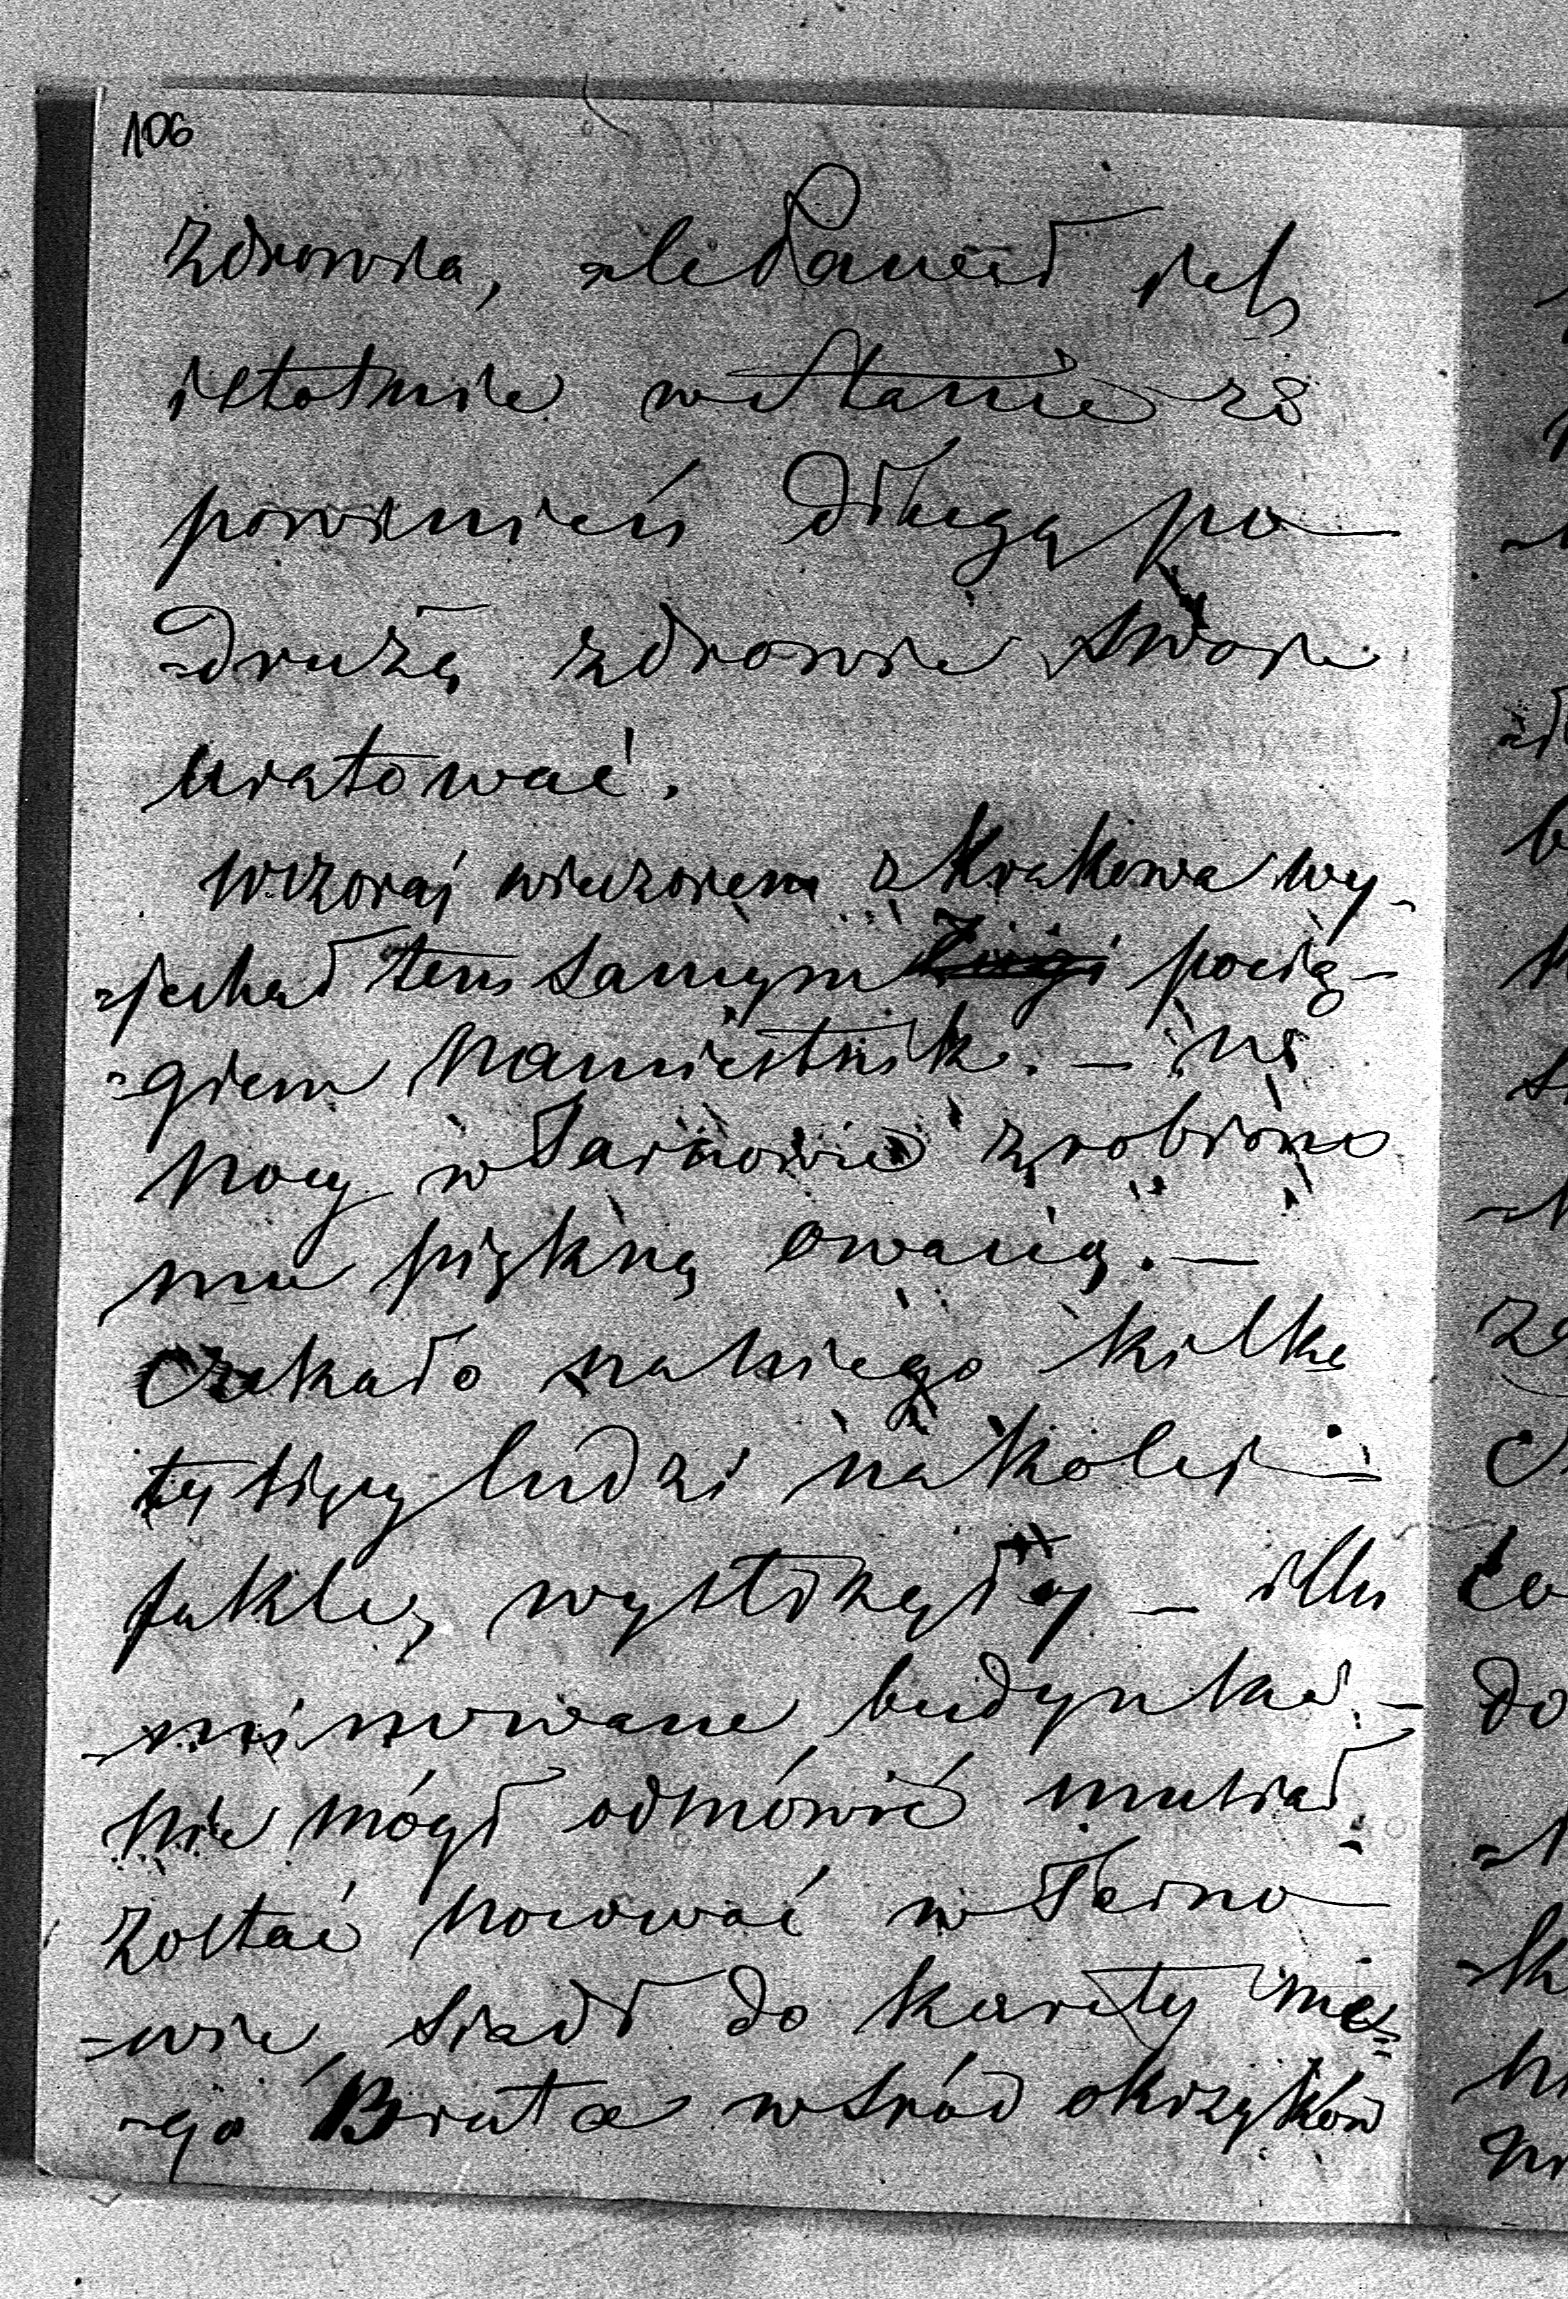 106
zdrowia, ale Pan jest
istotnie w stanie że
powinien długą po-
-drużą zdrowie swoje
uratować.
wczoraj wieczorem z Krakowa wy-
-jechał tem samym pocią-
-giem Namiestnik. — na
nocy w Tarnowie zrobiono
mu piękną owacią. —
czekało na niego kilka
tysięcy ludzi na kolei —
fakle, — illu
-minowane budynki —
nie mógł odmówić musiał
zostać nocować w Tarno-
-wie, siadł do karety me-
-go Brata wśród okrzyków